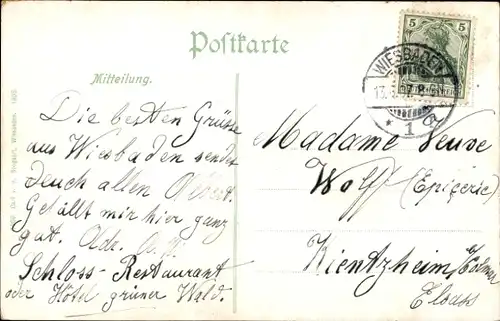 Postkarte
Mitteilung.
Die besten Grüsse
aus Wiesbaden sendet
Euch allen Albert.
Gefällt mir hier ganz
gut. Adr.
Schloss-Restaurant
oder Hôtel grüner Wald.
5 5
WIESBADEN
* 1
Madame Veuve
Wolff (Epicerie)
Kientzheim b/Colmar
Elsass